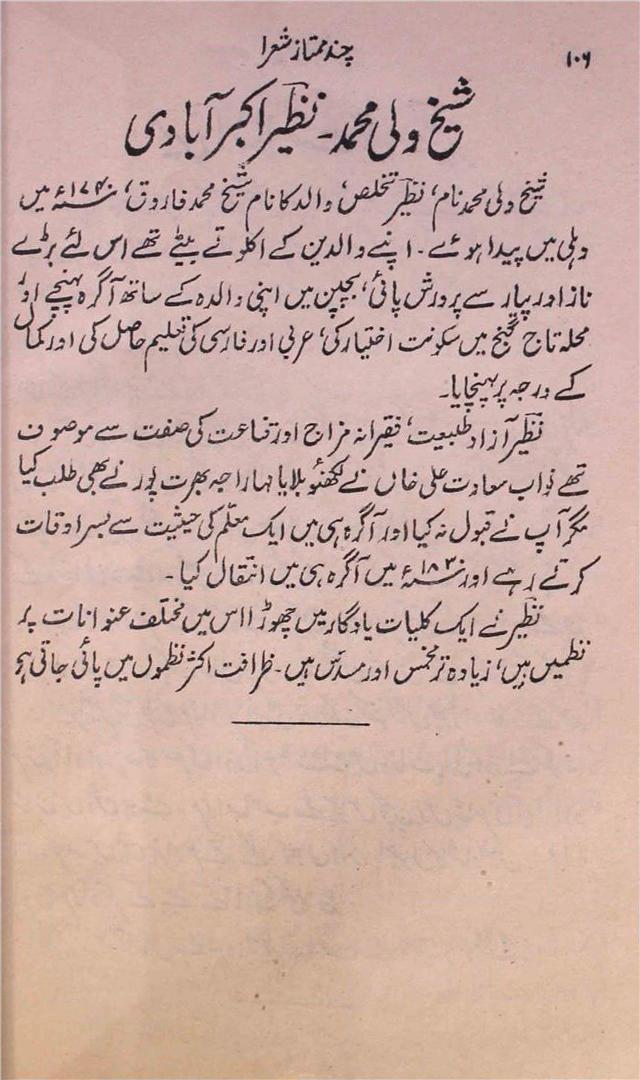 ۱۰۶
چند ممتاز شعرا
شیخ ولی محمد۔ نظیر اکبر آبادی
شیخ ولی محمد نام، نظیر تخلص، والد کا نام شیخ محمد فاروق، ۱۷۴۰ء میں
دہلی میں پیدا ہوئے۔ اپنے والدین کے اکلوتے بیٹے تھے اس لئے بڑے
ناز اور پیار سے پرورش پائی، بچپن میں اپنی والدہ کے ساتھ آگرہ پہنچے اور
محلہ تاج گنج میں سکونت اختیار کی، عربی اور فارسی کی تعلیم حاصل کی اور کمال
کے درجہ پر پہنچایا۔
نظیر آزاد طبیعت، فقیرانہ مزاج اور قناعت کی صفت سے موصوف
تھے نواب سعادت علی خاں نے لکھنؤ بلایا مہاراجہ بھرت پور نے بھی طلب کیا
مگر آپ نے قبول نہ کیا اور آگرہ ہی میں ایک معلّم کی حیثیت سے بسر اوقات
کرتے رہے اور ۱۸۳۰ء میں آگرہ ہی میں انتقال کیا۔
نظیر نے ایک کلیات یادگار میں چھوڑا اس میں مختلف عنوانات پر
نظمیں ہیں، زیادہ تر مخمس اور مسدّس ہیں۔ ظرافت اکثر نظموں میں پائی جاتی ہے